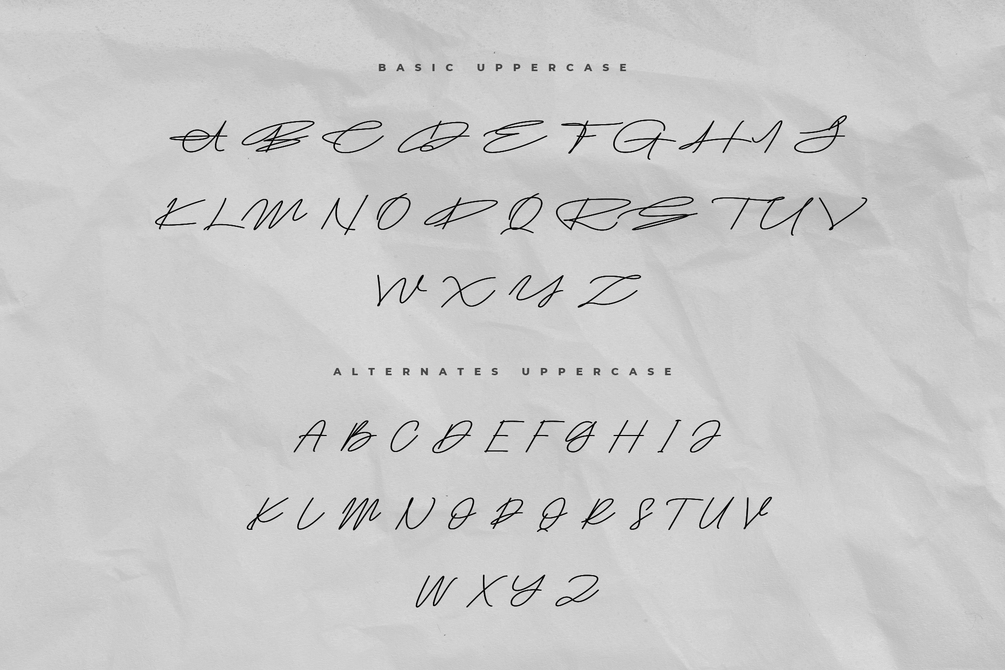 BASIC UPPERCASE
A B C D E F G H I J
K L M N O P Q R S T U V
W X Y Z
ALTERNATES UPPERCASE
A B C D E F G H I J
K L M N O P Q R S T U V
W X Y Z